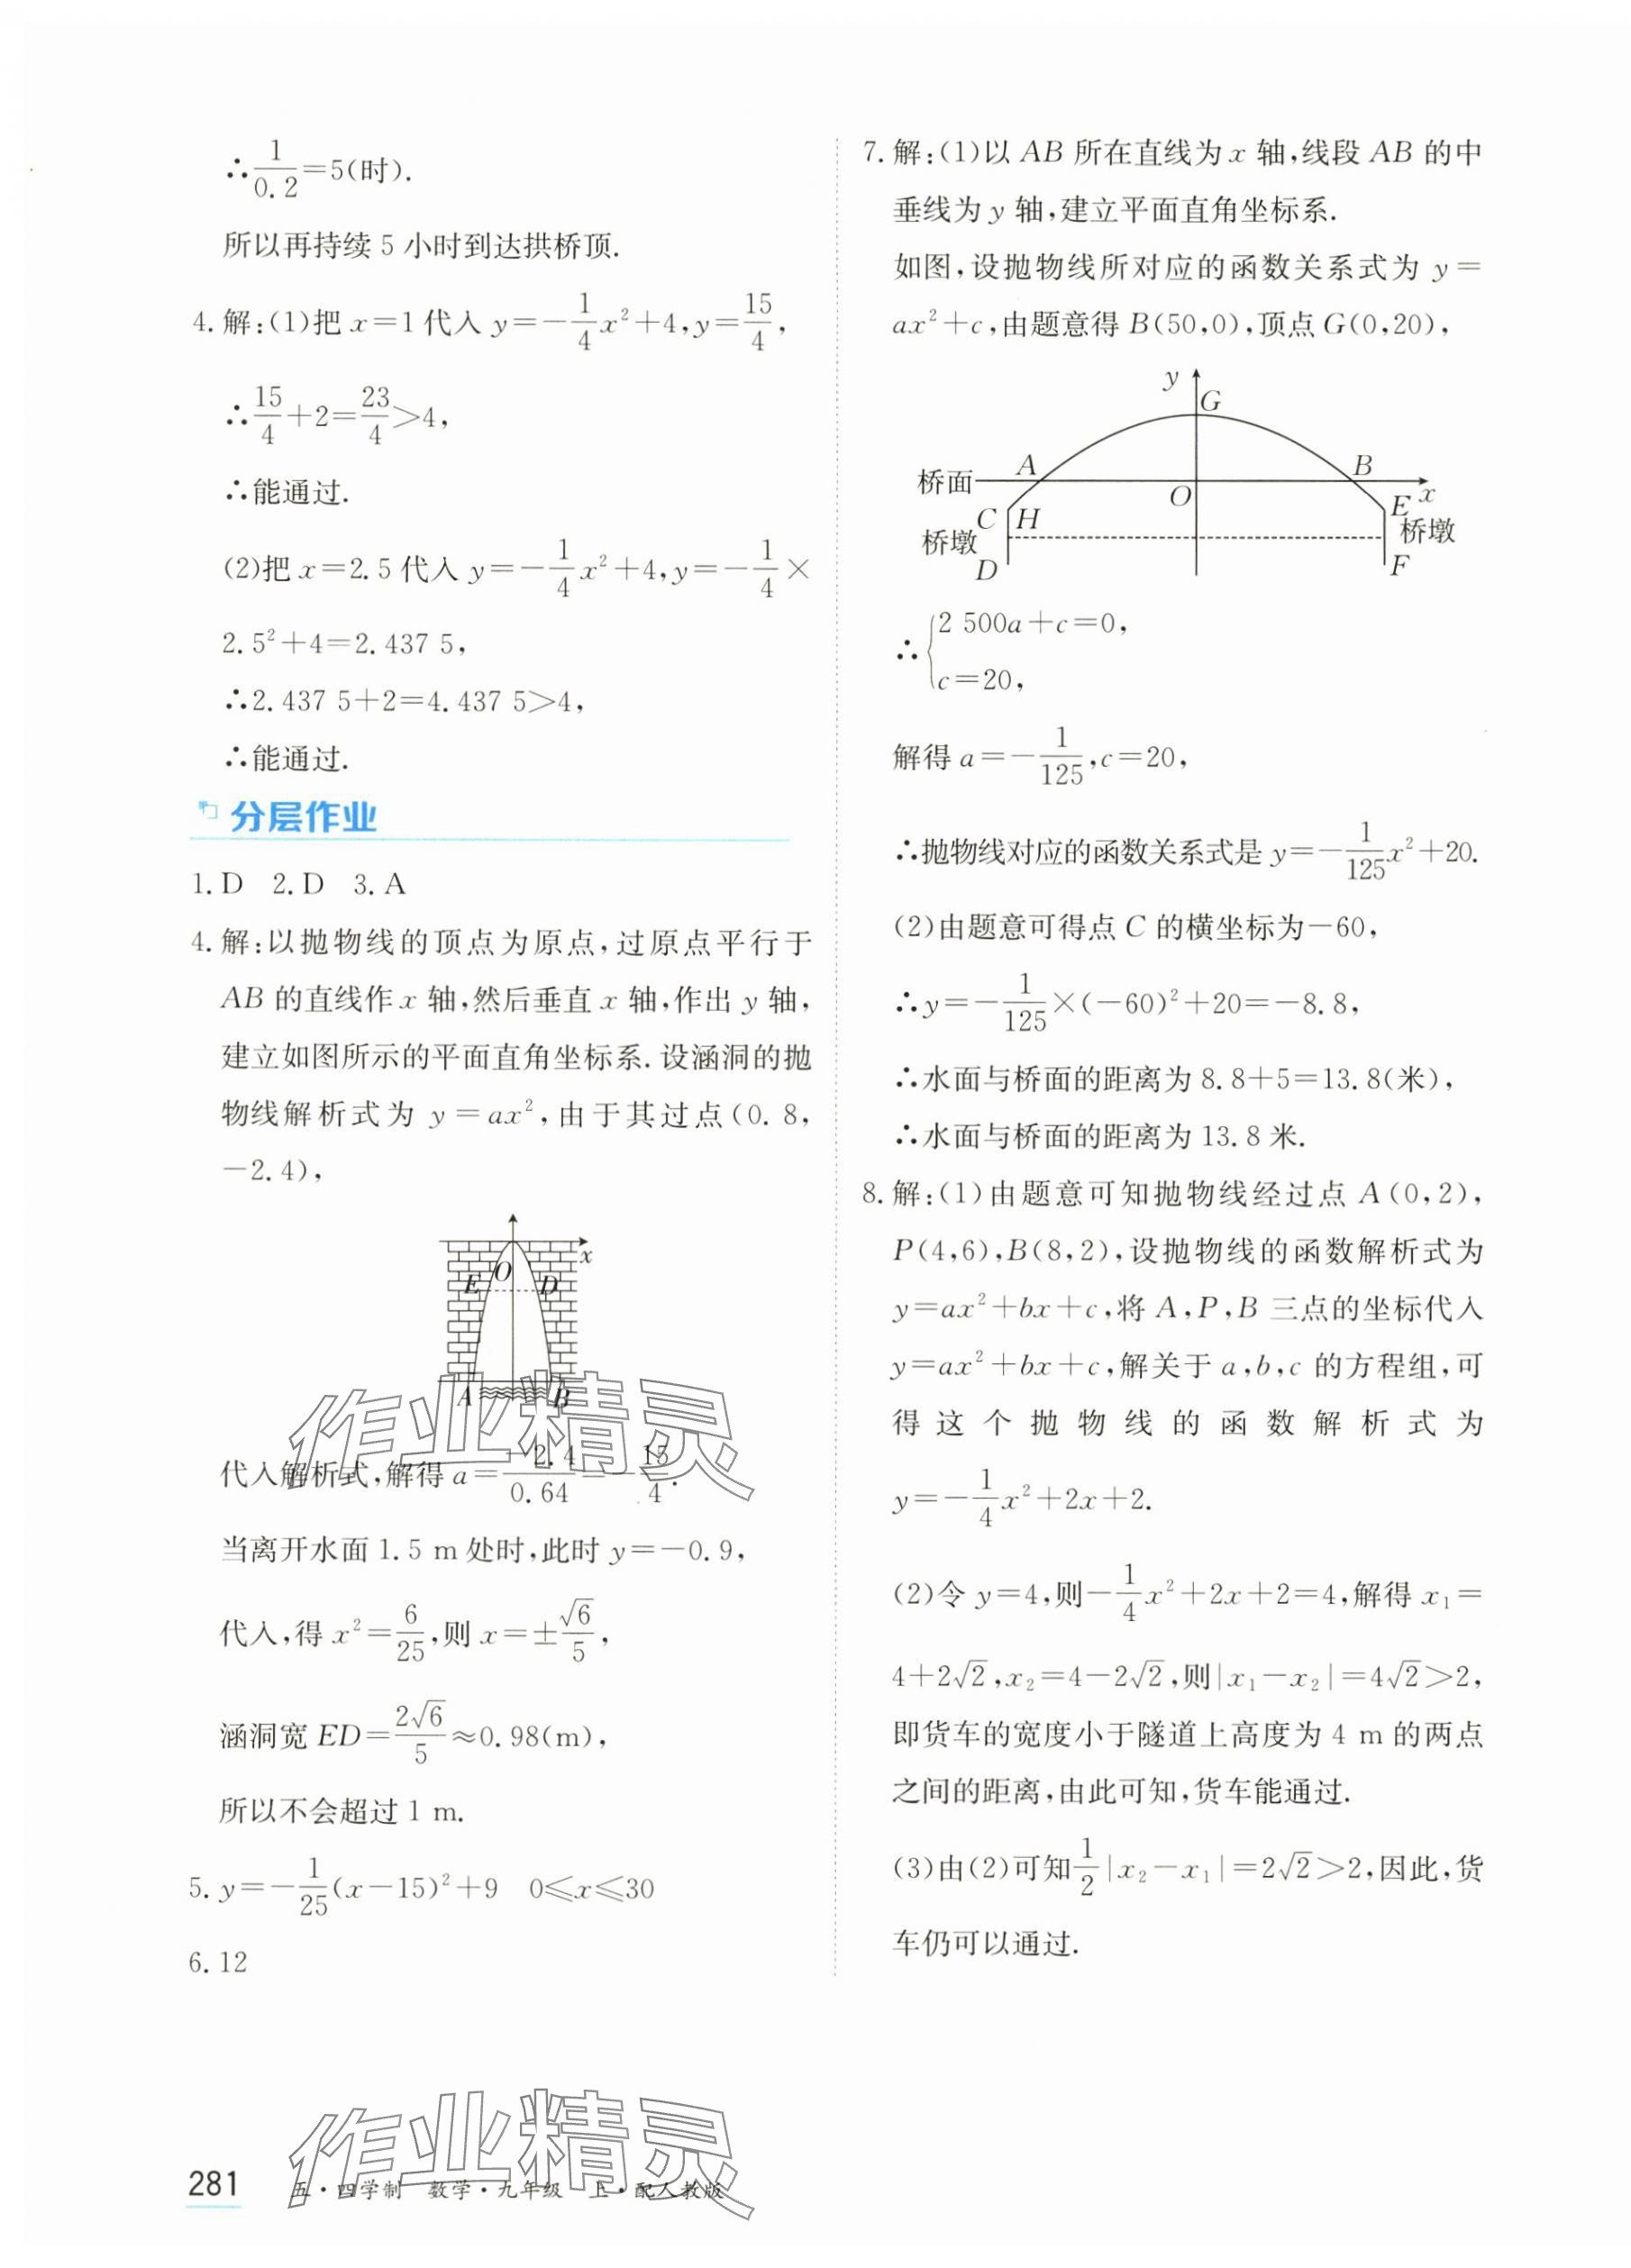 ∴1/0.2=5(时).
所以再持续 5 小时到达拱桥顶.
4. 解:(1)把 x=1 代入 y=-1/4x²+4,y=15/4,
∴15/4+2=23/4>4,
∴能通过.
(2)把 x=2.5 代入 y=-1/4x²+4,y=-1/4×
2.5²+4=2.437 5,
∴2.437 5+2=4.437 5>4,
∴能通过.
分层作业
1. D 2. D 3. A
4. 解:以抛物线的顶点为原点,过原点平行于
AB 的直线作 x 轴,然后垂直 x 轴,作出 y 轴,
建立如图所示的平面直角坐标系.设涵洞的抛
物线解析式为 y=ax²,由于其过点(0.8,
-2.4),
x
O
E D
A B
代入解析式,解得 a=-2.4/0.64=-15/4.
当离开水面 1.5 m 处时,此时 y=-0.9,
代入,得 x²=6/25,则 x=±√6/5,
涵洞宽 ED=2√6/5≈0.98(m),
所以不会超过 1 m.
5. y=-1/25(x-15)²+9 0≤x≤30
6. 12
7. 解:(1)以 AB 所在直线为 x 轴,线段 AB 的中
垂线为 y 轴,建立平面直角坐标系.
如图,设抛物线所对应的函数关系式为 y=
ax²+c,由题意得 B(50,0),顶点 G(0,20),
y
G
A B
桥面 O x
C H E
桥墩 桥墩
D F
∴{2 500a+c=0,
c=20,
解得 a=-1/125,c=20,
∴抛物线对应的函数关系式是 y=-1/125x²+20.
(2)由题意可得点 C 的横坐标为-60,
∴y=-1/125×(-60)²+20=-8.8,
∴水面与桥面的距离为 8.8+5=13.8(米),
∴水面与桥面的距离为 13.8 米.
8. 解:(1)由题意可知抛物线经过点 A(0,2),
P(4,6),B(8,2),设抛物线的函数解析式为
y=ax²+bx+c,将 A,P,B 三点的坐标代入
y=ax²+bx+c,解关于 a,b,c 的方程组,可
得这个抛物线的函数解析式为
y=-1/4x²+2x+2.
(2)令 y=4,则-1/4x²+2x+2=4,解得 x₁=
4+2√2,x₂=4-2√2,则|x₁-x₂|=4√2>2,
即货车的宽度小于隧道上高度为 4 m 的两点
之间的距离,由此可知,货车能通过.
(3)由(2)可知1/2|x₂-x₁|=2√2>2,因此,货
车仍可以通过.
作业精灵
作业精灵
281 五·四学制 数学·九年级 上·配人教版